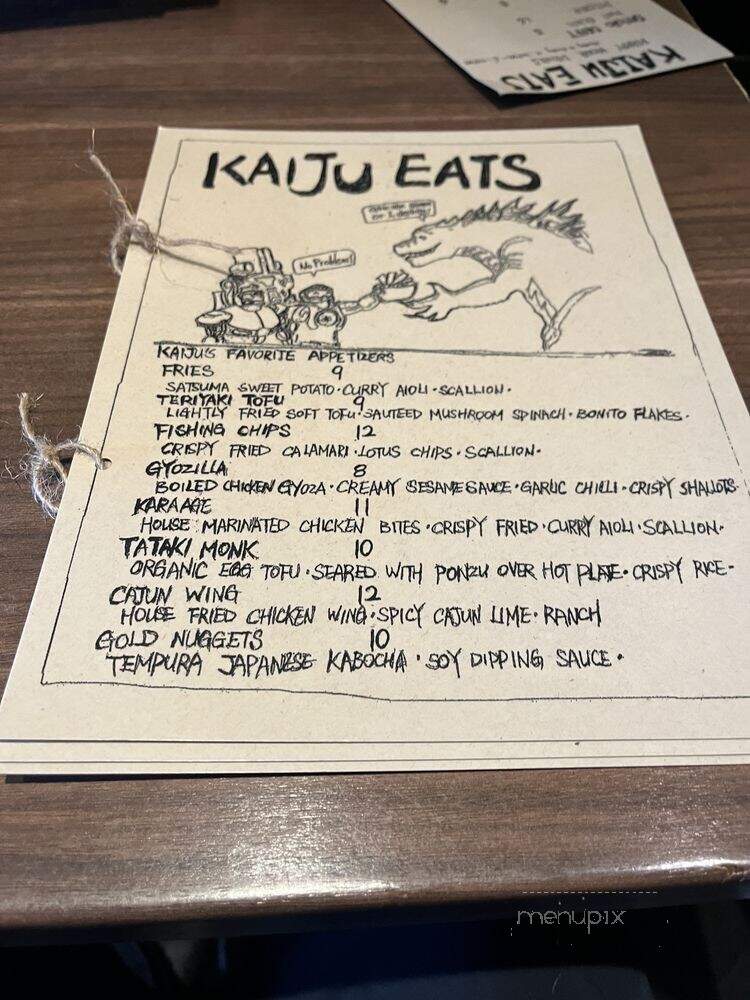 KAIJU EATS
KAIJU EATS
No Problem!
KAIJU'S FAVORITE APPETIZERS
FRIES 9
SATSUMA SWEET POTATO · CURRY AIOLI · SCALLION ·
TERIYAKI TOFU 9
LIGHTLY FRIED SOFT TOFU · SAUTEED MUSHROOM SPINACH · BONITO FLAKES ·
FISHING CHIPS 12
CRISPY FRIED CALAMARI · LOTUS CHIPS · SCALLION ·
GYOZILLA 8
BOILED CHICKEN GYOZA · CREAMY SESAME SAUCE · GARLIC CHILLI · CRISPY SHALLOTS ·
KARAAGE 11
HOUSE MARINATED CHICKEN BITES · CRISPY FRIED · CURRY AIOLI · SCALLION ·
TATAKI MONK 10
ORGANIC EGG TOFU · SEARED WITH PONZU OVER HOT PLATE · CRISPY RICE ·
CAJUN WING 12
HOUSE FRIED CHICKEN WING · SPICY CAJUN LIME · RANCH
GOLD NUGGETS 10
TEMPURA JAPANESE KABOCHA · SOY DIPPING SAUCE ·
menupix